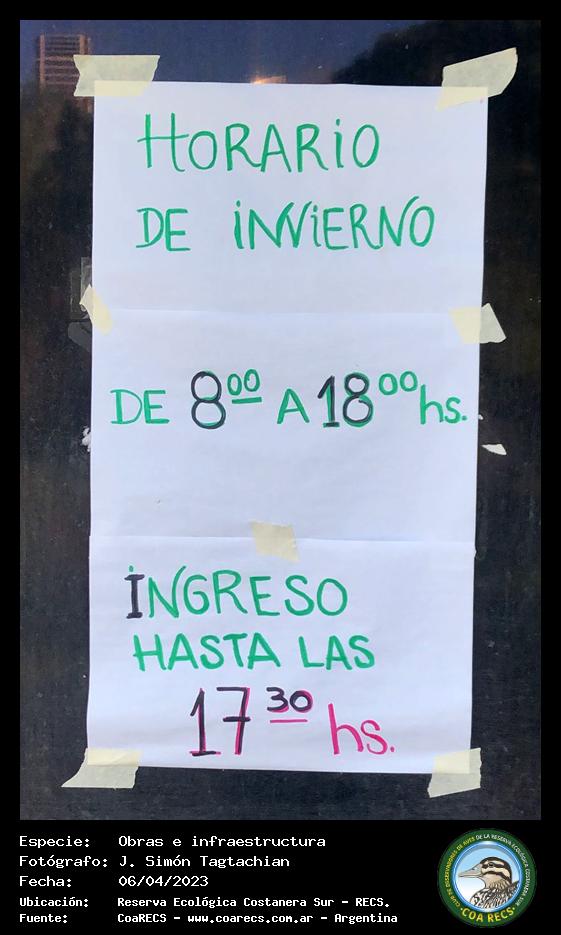 HORARIO
DE INVIERNO
DE 8⁰⁰ A 18⁰⁰ hs.
INGRESO
HASTA LAS
17³⁰ hs.
Especie: Obras e infraestructura
Fotógrafo: J. Simón Tagtachian
Fecha: 06/04/2023
Ubicación: Reserva Ecológica Costanera Sur - RECS.
Fuente: CoaRECS - www.coarecs.com.ar - Argentina
CLUB DE OBSERVADORES DE AVES DE LA RESERVA ECOLÓGICA COSTANERA SUR
COA RECS